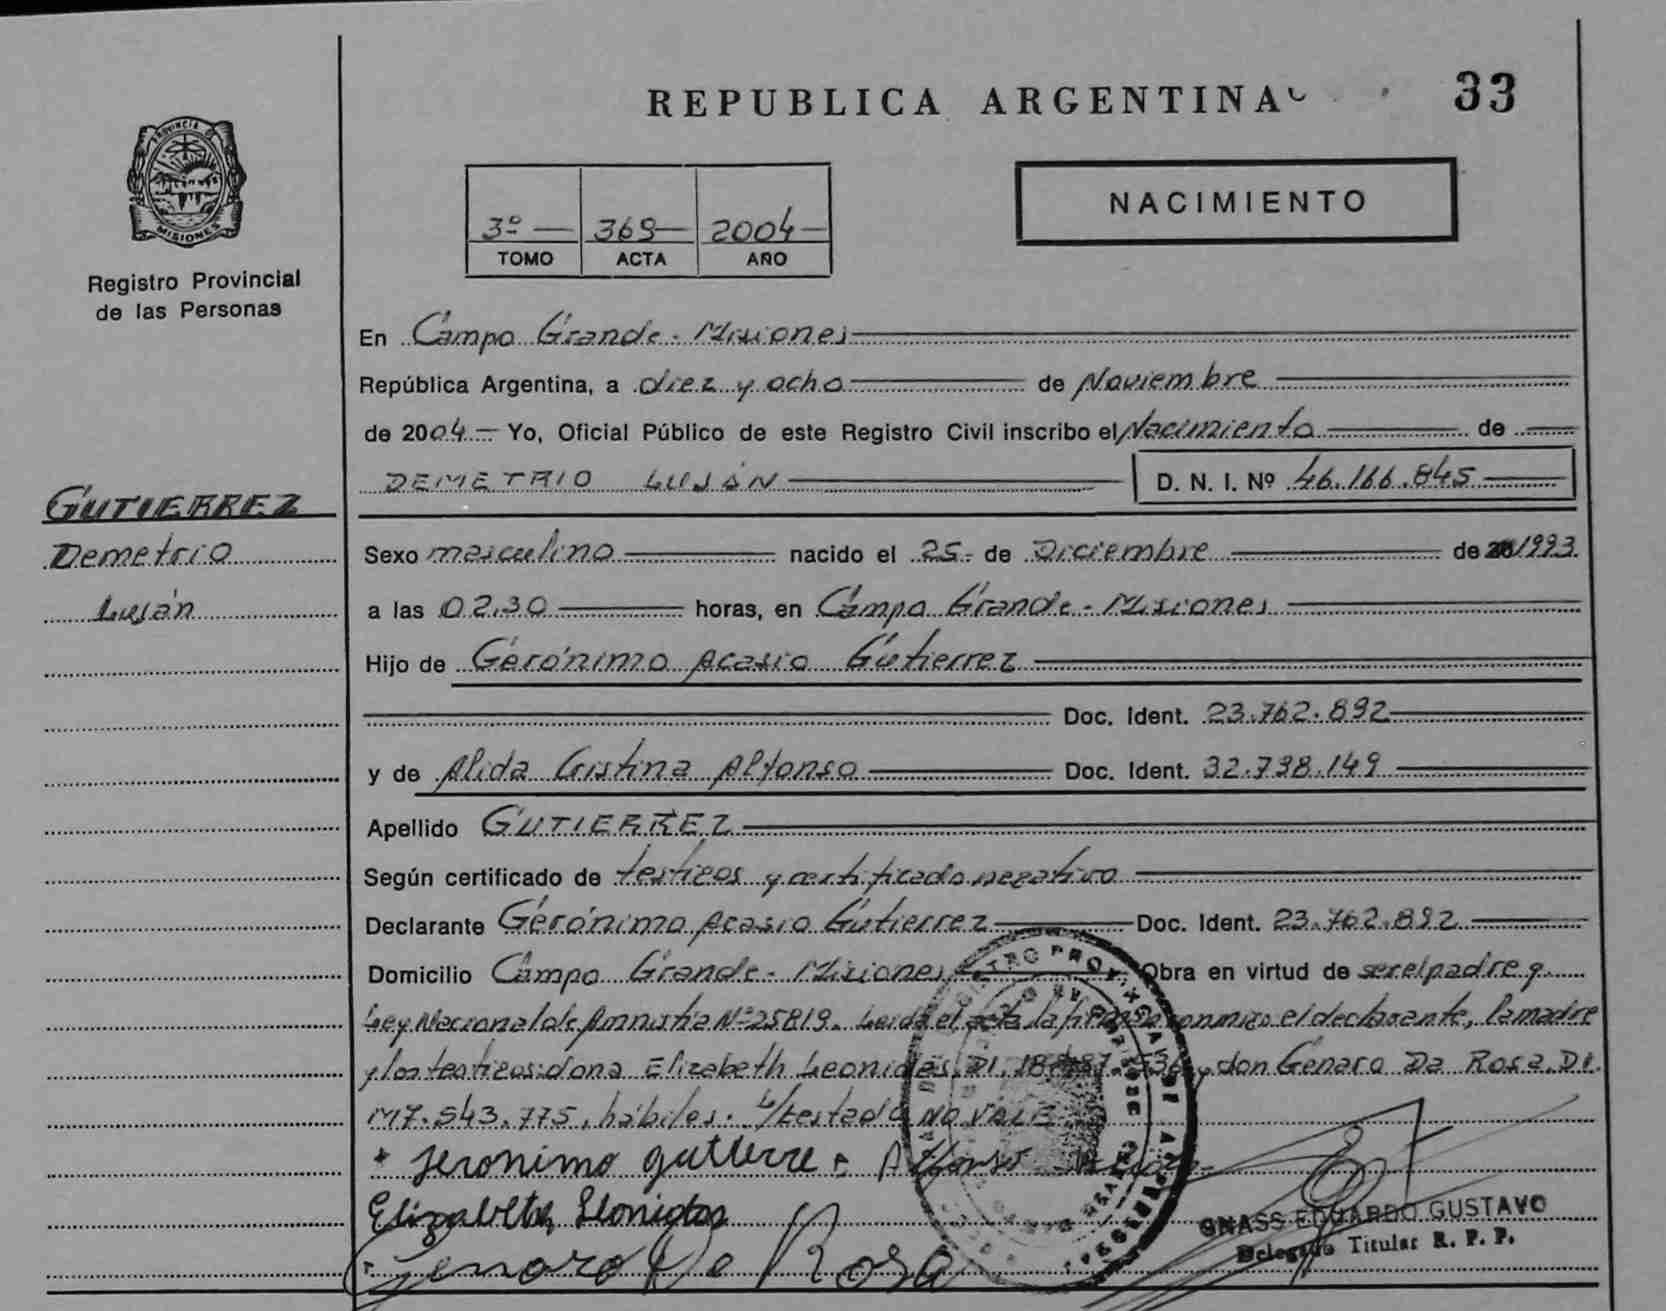 REPUBLICA ARGENTINA
33
PROVINCIA DE
MISIONES
Registro Provincial
de las Personas
3º 369 2004
TOMO ACTA AÑO
NACIMIENTO
En Campo Grande - Misiones
República Argentina, a diez y ocho de Noviembre
de 2004 Yo, Oficial Público de este Registro Civil inscribo el Nacimiento de
DEMETRIO LUJÁN D. N. I. Nº 46.166.845
GUTIERREZ
Demetrio
Luján
Sexo masculino nacido el 25 de Diciembre de 1993
a las 02.30 horas, en Campo Grande - Misiones
Hijo de Gerónimo Acasio Gutierrez
Doc. Ident. 23.762.892
y de Alida Cristina Alfonso Doc. Ident. 32.738.149
Apellido GUTIERREZ
Según certificado de testigos y certificado negativo
Declarante Gerónimo Acasio Gutierrez Doc. Ident. 23.762.892
Domicilio Campo Grande - Misiones Obra en virtud de ser el padre y
Ley Nacional de Amnistia Nº 25819. Leida el acta la firman conmigo el declarante, la madre
y los testigos: doña Elizabeth Leonidas, DI. y don Genaro Da Rosa. DI.
M7.543.775, hábiles. S/testado NO VALE
Jeronimo gutierre
Elizabeth Leonidas
Genaro De Rosa
GNASS EDUARDO GUSTAVO
Delegado Titular R. P. P.